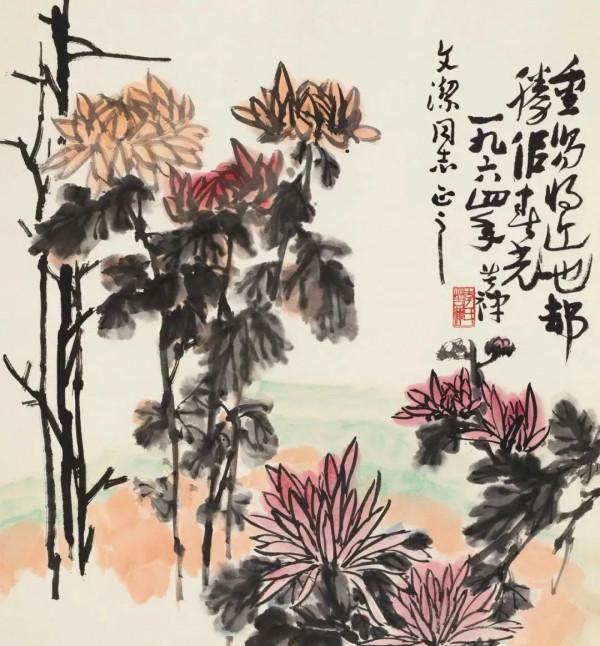 重陽将近也都
勝似春光
一九六四年 苦禪
文潔同志正之